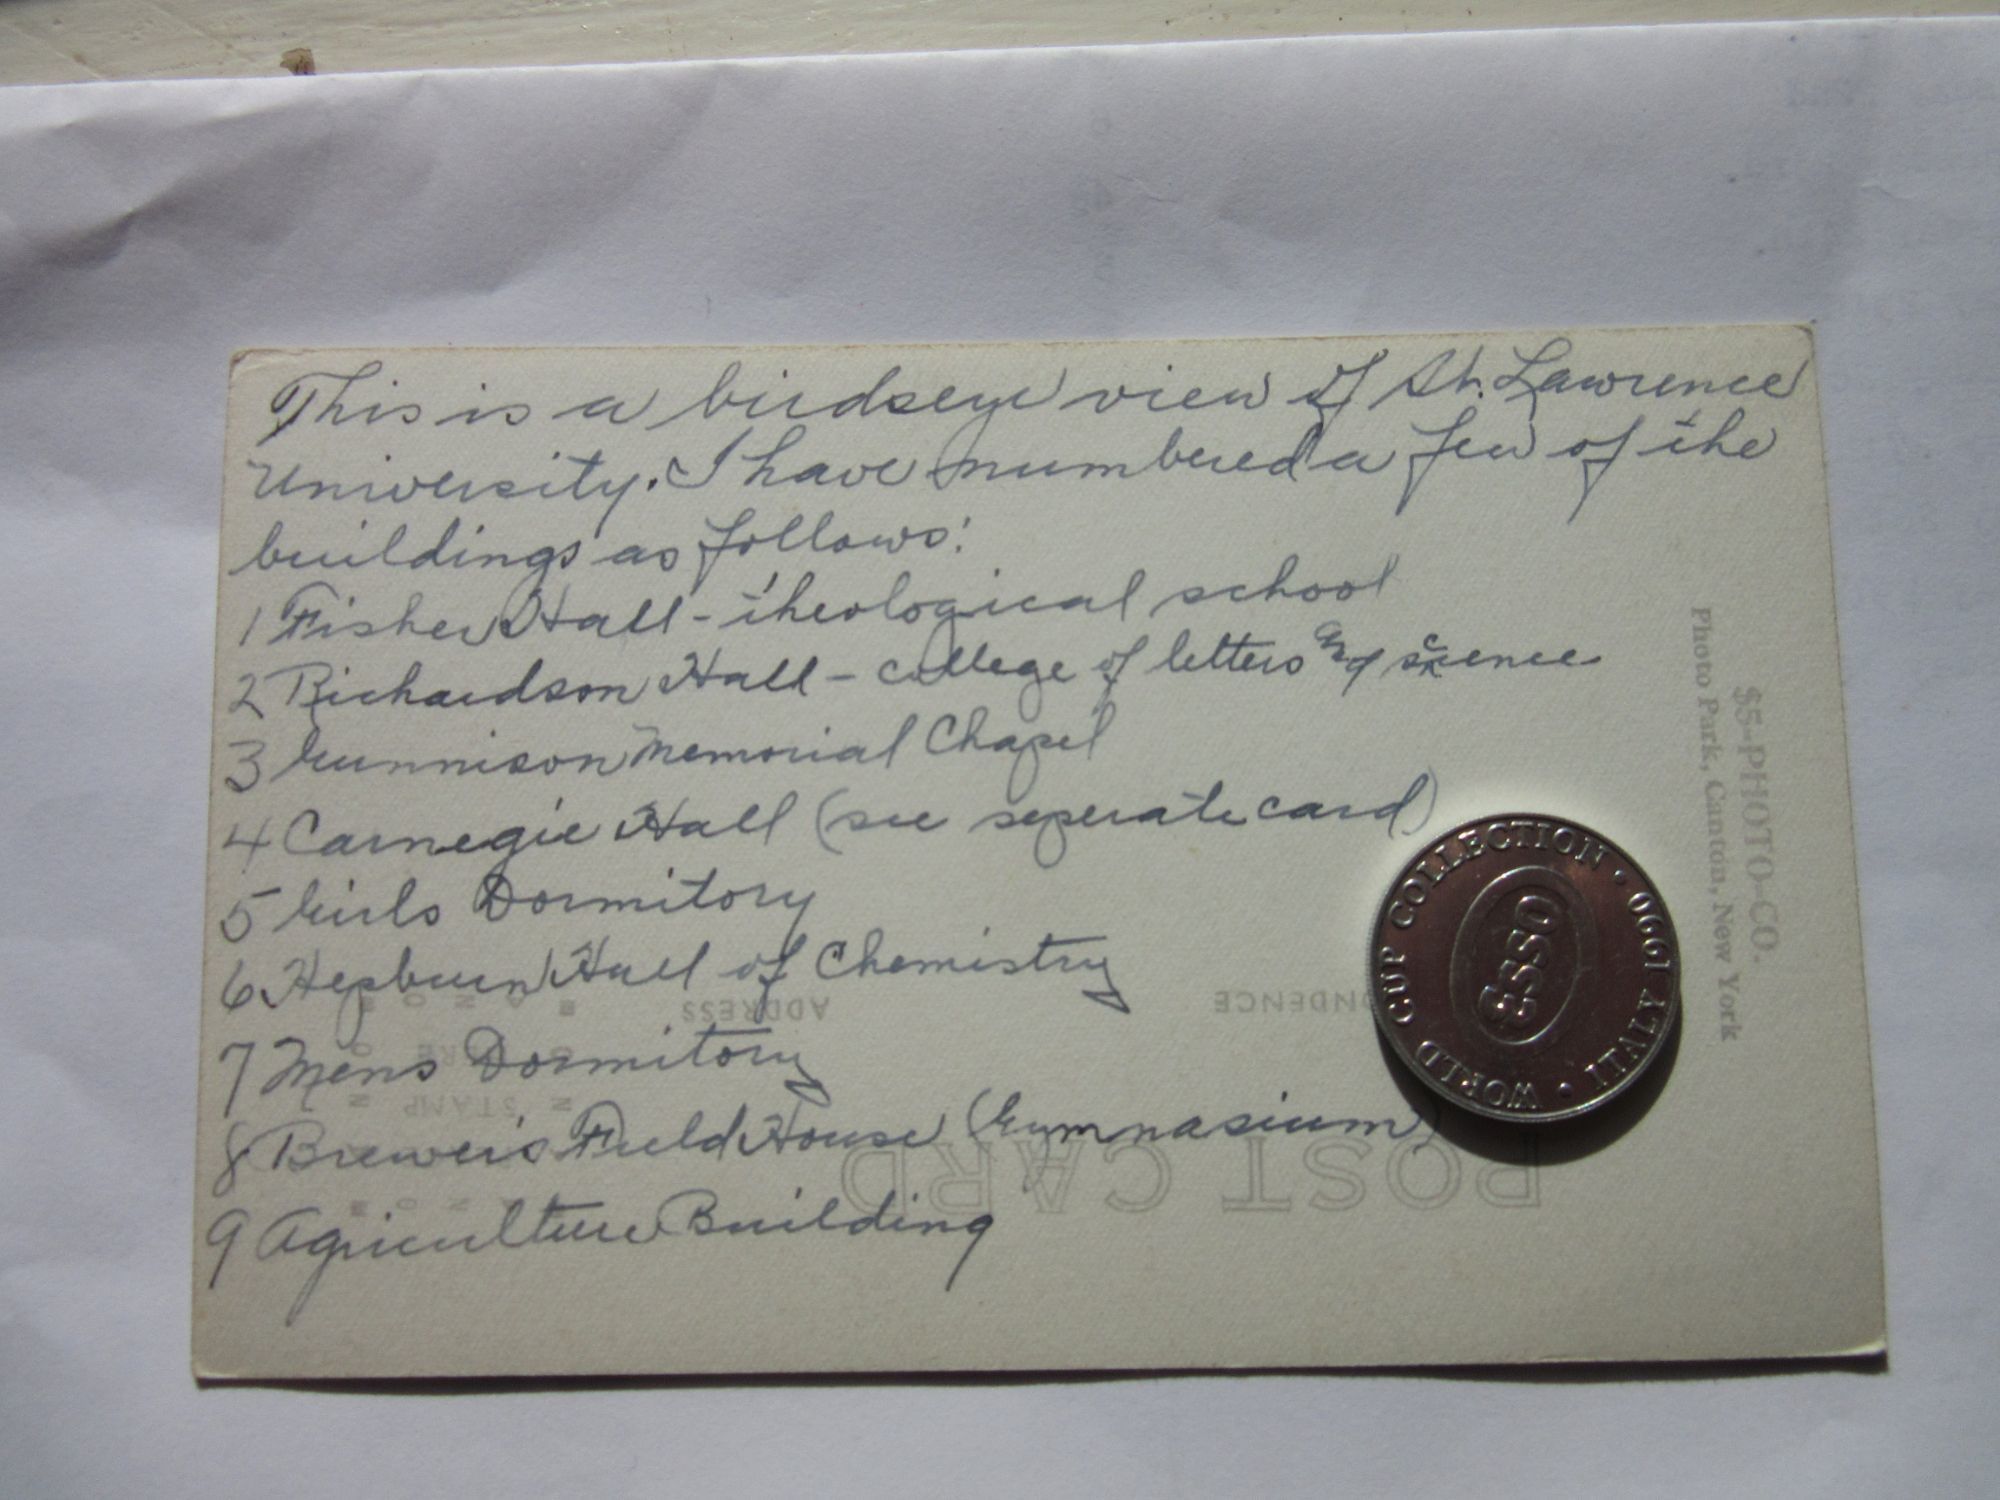 This is a birdseye view of St. Lawrence
University. I have numbered a few of the
buildings as follows:
1 Fisher Hall - theological school
2 Richardson Hall - college of letters and science
3 Gunnison Memorial Chapel
4 Carnegie Hall (see seperate card)
5 Girls Dormitory
6 Hepburn Hall of Chemistry
7 Mens Dormitory
8 Brewers Field House (Gymnasium)
9 Agriculture Building
$5-PHOTO-CO.
Photo Park, Canton, New York
ADDRESS
ONDENCE
STAMP
POST CARD
WORLD CUP COLLECTION • ITALY 1990 •
ESSO